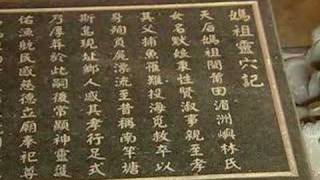 媽祖靈穴記
天后媽祖閩莆田湄洲嶼林氏
女名默娘秉性賢淑事親至孝
其父捕魚罹難投海覓救卒以
身殉負屍漂流至昔稱南竿塘
斯島現址鄉人感其孝行足式
乃厚葬於此嗣後常顯神靈護
佑漁航民感慈德立廟奉祀尊